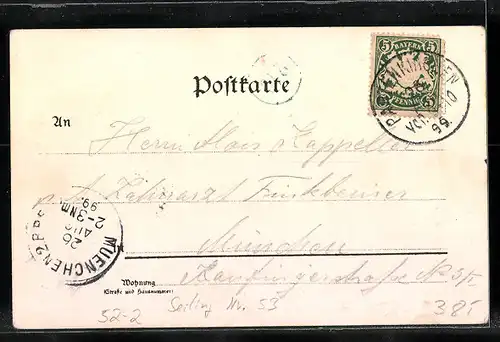 5 BAYERN 5
5 PFENNIG 5
VOR 10
99.
Postkarte
An
Herrn Alois Cappeller
Zahnarzt Finkbeiner
München
Kaufingerstraße No 3/I
MUENCHEN 2 B.P.
26
AUG
2-3 NM.
99
Wohnung
(Straße und Hausnummer)
52-2 Seiling Nr. 53
385